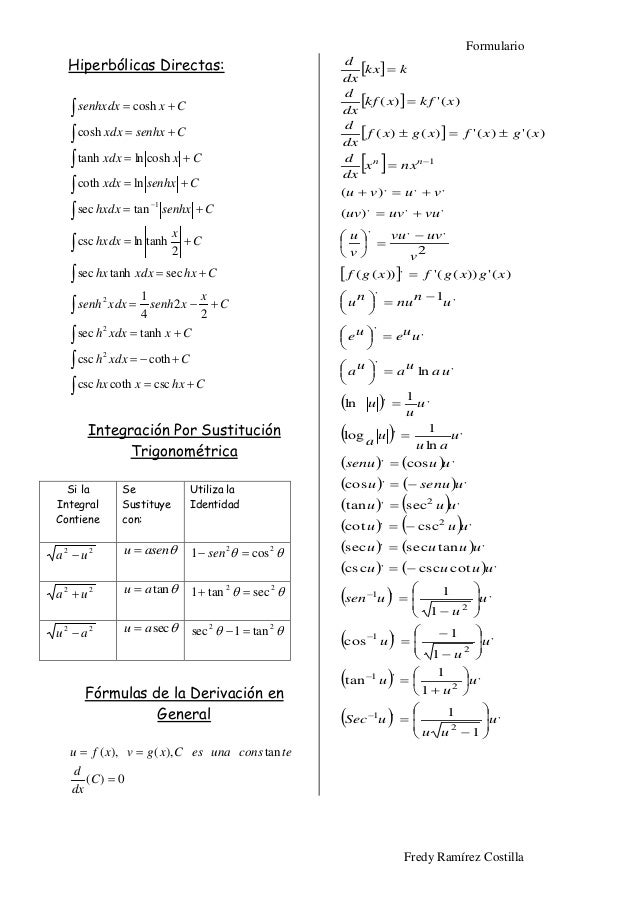 Formulario
Hiperbólicas Directas:
∫ senhxdx = cosh x + C
∫ cosh xdx = senhx + C
∫ tanh xdx = ln|cosh x| + C
∫ coth xdx = ln|senhx| + C
∫ sec hxdx = tan⁻¹|senhx| + C
∫ csc hxdx = ln|tanh x/2| + C
∫ sec hx tanh xdx = sec hx + C
∫ senh² xdx = 1/4 senh2x − x/2 + C
∫ sec h² xdx = tanh x + C
∫ csc h² xdx = − coth + C
∫ csc hx coth x = csc hx + C
Integración Por Sustitución
Trigonométrica
Si la Integral Contiene | Se Sustituye con: | Utiliza la Identidad
√(a² − u²) | u = asenθ | 1 − sen²θ = cos²θ
√(a² + u²) | u = a tanθ | 1 + tan²θ = sec²θ
√(u² − a²) | u = a secθ | sec²θ − 1 = tan²θ
Fórmulas de la Derivación en
General
u = f(x), v = g(x), C es una cons tan te
d/dx (C) = 0
d/dx [kx] = k
d/dx [kf(x)] = kf'(x)
d/dx [f(x) ± g(x)] = f'(x) ± g'(x)
d/dx [xⁿ] = nxⁿ⁻¹
(u + v)' = u' + v'
(uv)' = uv' + vu'
(u/v)' = (vu' − uv')/v²
[f(g(x))]' = f'(g(x))g'(x)
(uⁿ)' = nuⁿ⁻¹u'
(eᵘ)' = eᵘu'
(aᵘ)' = aᵘ ln a u'
(ln |u|)' = 1/u u'
(logₐ u)' = 1/(u ln a) u'
(senu)' = (cosu)u'
(cosu)' = (− senu)u'
(tanu)' = (sec² u)u'
(cotu)' = (− csc² u)u'
(secu)' = (secu tanu)u'
(cscu)' = (− cscu cotu)u'
(sen⁻¹u)' = (1/√(1 − u²))u'
(cos⁻¹ u)' = (−1/√(1 − u²))u'
(tan⁻¹ u)' = (1/(1 + u²))u'
(Sec⁻¹u)' = (1/(u√(u² − 1)))u'
Fredy Ramírez Costilla